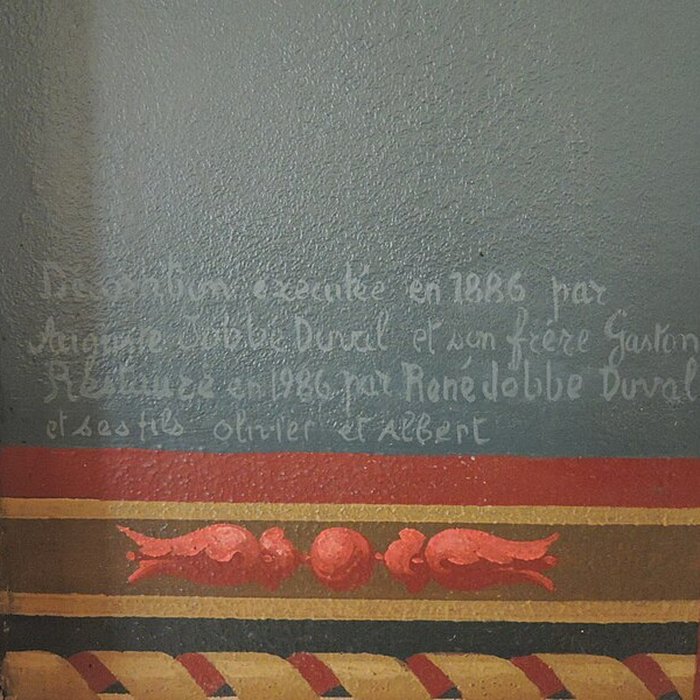 Décoration executée en 1886 par
Auguste Jobbé Duval et son frére Gaston
Restauré en 1986 par René Jobbe Duval
et ses fils Olivier et Albert